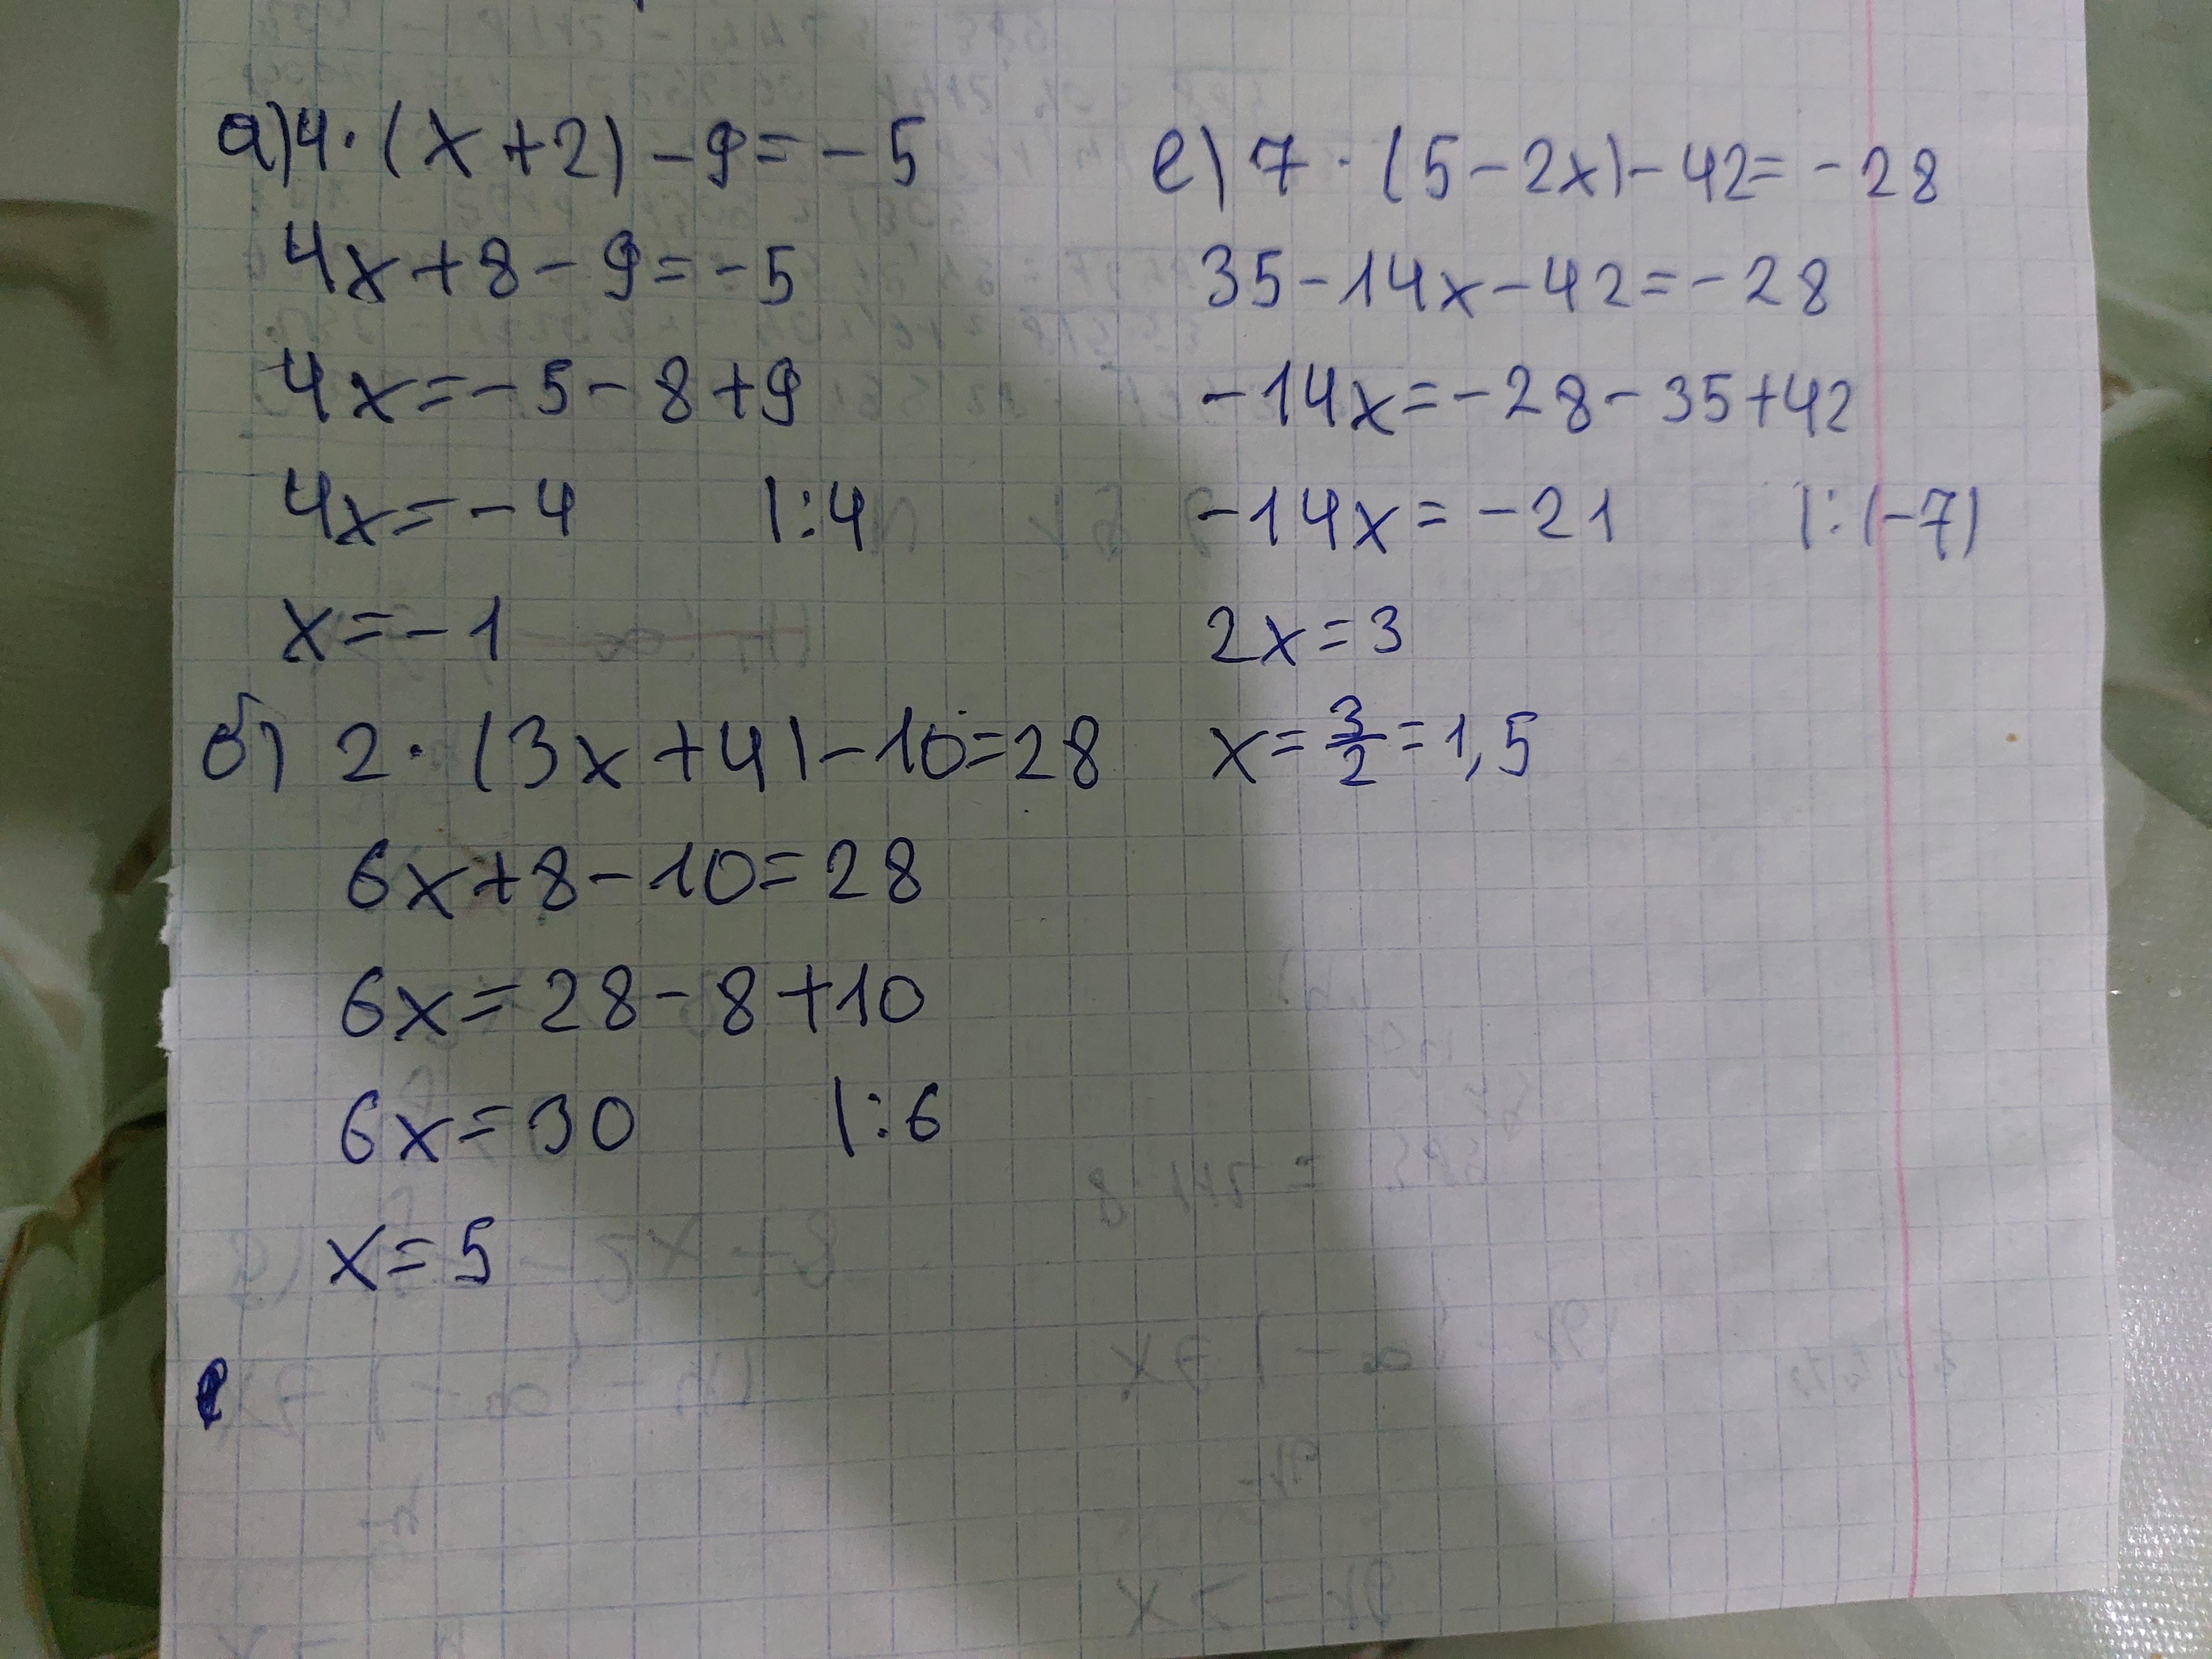 а) 4·(x+2)-9=-5
4x+8-9=-5
4x=-5-8+9
4x=-4 |:4
x=-1
б) 2·(3x+4)-10=28
6x+8-10=28
6x=28-8+10
6x=30 |:6
x=5
е) 7·(5-2x)-42=-28
35-14x-42=-28
-14x=-28-35+42
-14x=-21 |:(-7)
2x=3
x=3/2=1,5